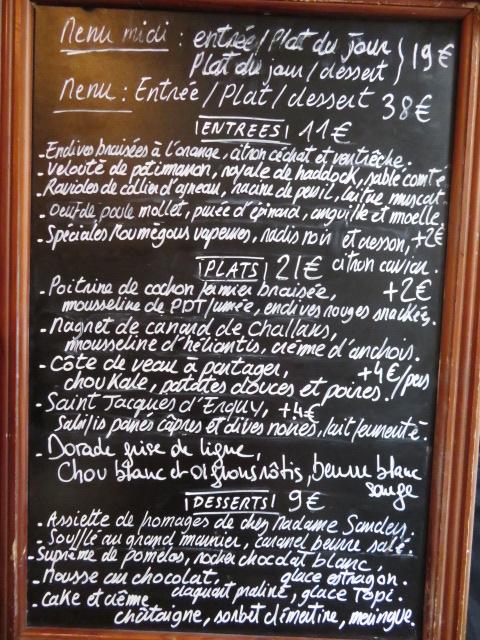 Menu midi : entrée/Plat du jour } 19€
Plat du jour/dessert
Menu : Entrée/Plat/dessert 38€
ENTREES 11€
- Endives braisées à l'orange, citron céchat et ventrêche.
- Velouté de potimarron, royale de haddock, sablé comté
- Ravioles de collier d'agneau, racine de persil, laitue muscat
- Oeuf de poule mollet, purée d'épinard, anguille et moelle
- Spéciales Roumégous vapeurs, radis noir et cresson, +2€
citron caviar.
PLATS 21€
- Poitrine de cochon fermier braisée, +2€
mousseline de PDT fumée, endives rouges snackées.
- Magret de canard de Challans,
mousseline d'héliantis, crème d'anchois.
- Côte de veau à partager, +4€/pers
chou Kale, patates douces et poires.
- Saint Jacques d'Erquy, +4€
Salsifis panés câpres et olives noires, lait fermenté.
- Dorade grise de ligne,
Chou blanc et oignons rôtis, beurre blanc
sauge
DESSERTS 9€
- Assiette de fromages de chez Madame Sanders.
- Soufflé au grand marnier, caramel beurre salé.
- Suprême de pomelos, rocher chocolat blanc,
glace estragon.
- Mousse au chocolat,
craquant praliné, glace Topi.
- Cake et crème
châtaigne, sorbet clémentine, meringue.